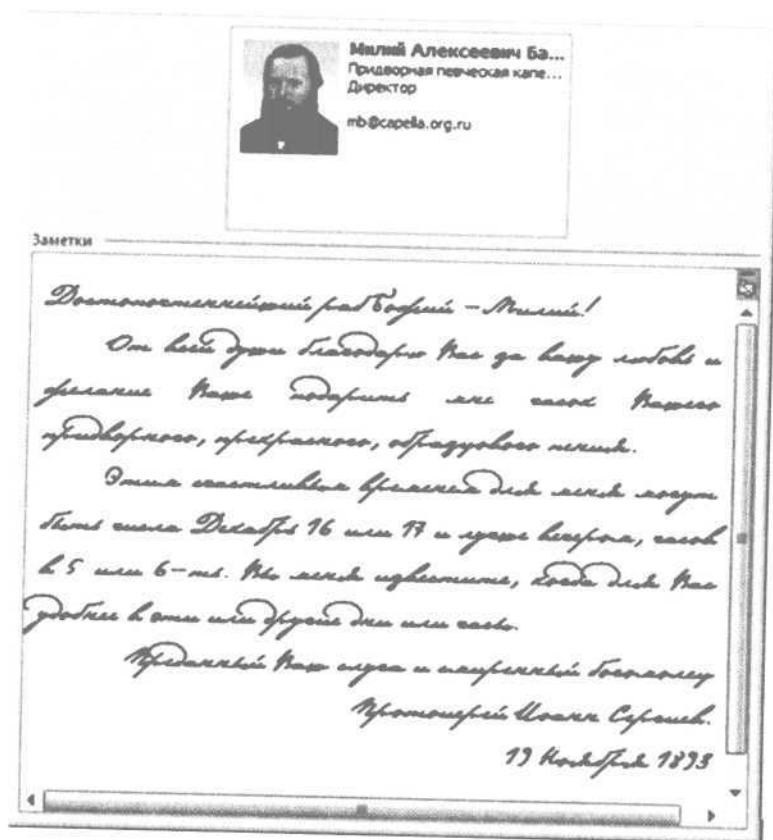 Милий Алексеевич Ба...
Придворная певческая капе...
Директор
mb@capella.org.ru
Заметки
Достопочтеннейший раб Божий – Милий!
От всей души благодарю Вас за вашу любовь и
желание Ваше подарить мне часок Вашего
придворного, прекрасного, образцового пения.
Этим счастливым временем для меня могут
быть числа Декабря 16 или 17 и лучше вечером, часов
в 5 или 6-ть. Вы меня известите, когда для Вас
удобнее в эти или другие дни или часы.
Преданный Ваш слуга и смиренный богомолец
Протоиерей Иоанн Сергиев.
19 Ноября 1893